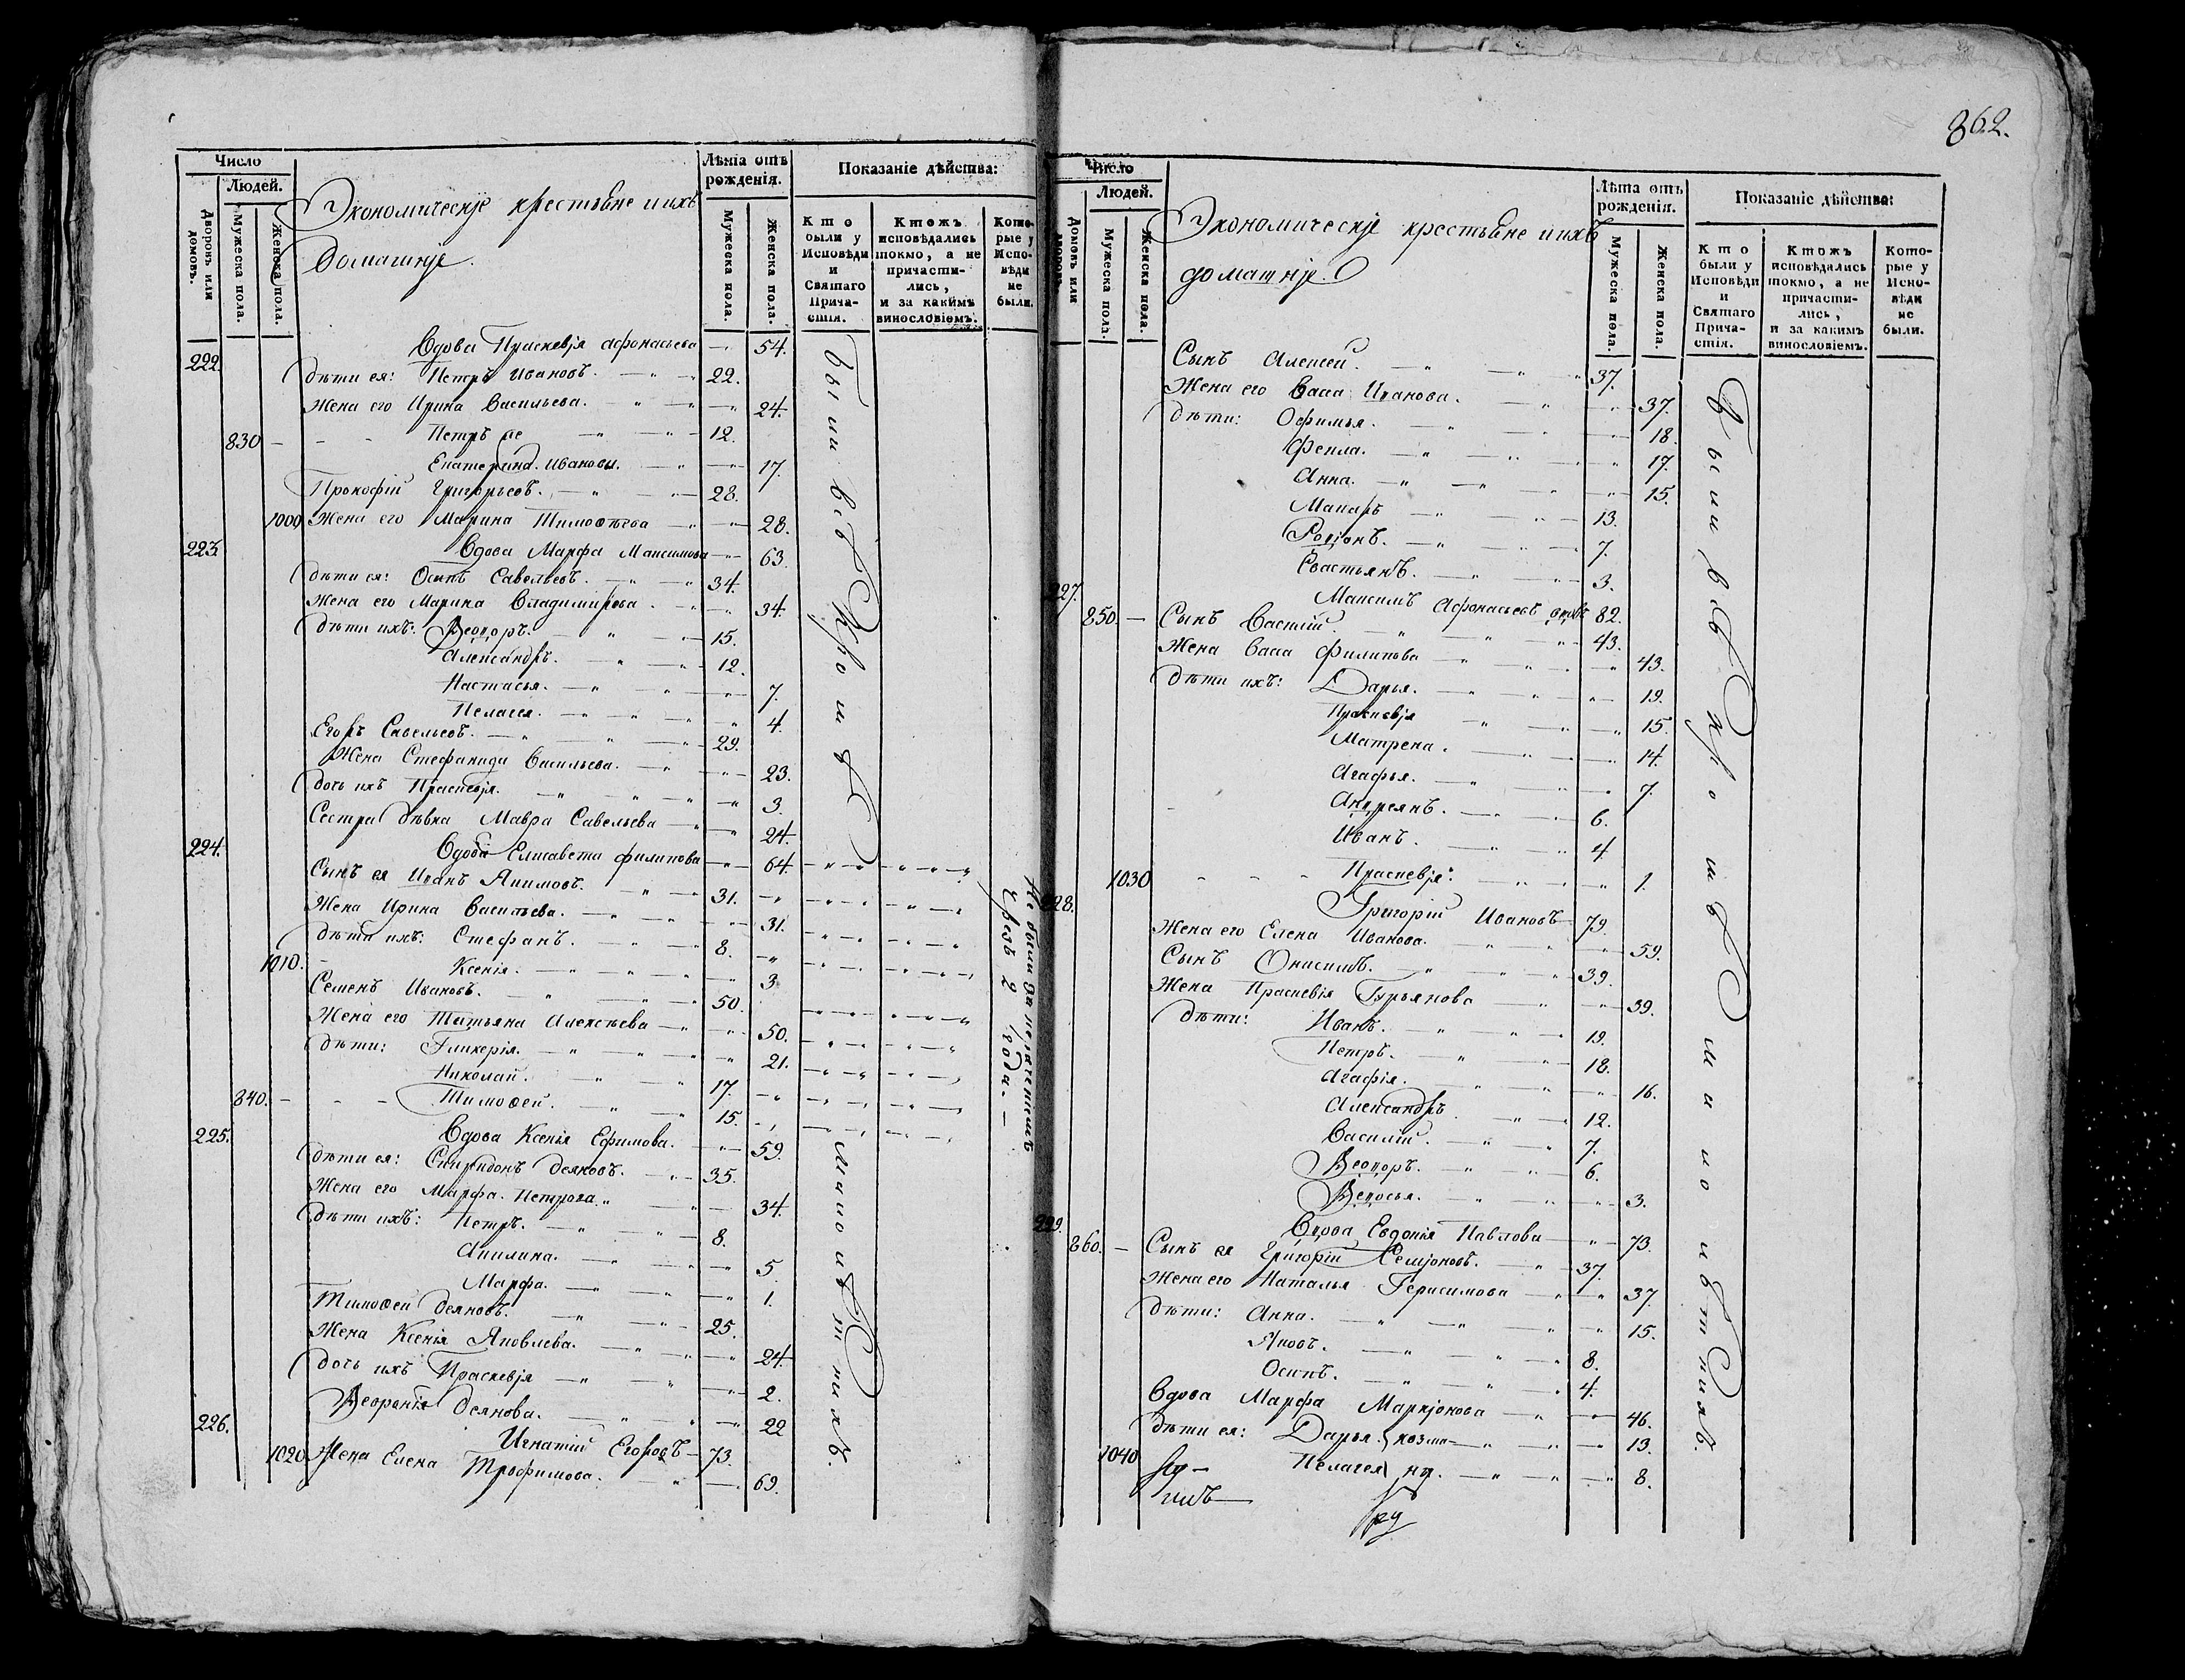 862.
Число
Людей.
Дворовъ или домовъ.
Мужеска пола.
Женска пола.
Экономическіе крестьяне и ихъ
домашніе.
Лѣта отъ рожденія.
Мужеска пола.
Женска пола.
Показаніе дѣйства:
Кто были у Исповѣди и Святаго Причастія.
Ктожъ исповѣдались токмо, а не причастились, и за какимъ винословіемъ.
Которые у Исповѣди не были.
Вдова Праскевія Афонасьева — 54.
222. дѣти ея: Петръ Ивановъ. — 22.
Жена его Ирина Васильева. — 24.
830 — Петръ же — 12.
Екатерина. Ивановы. — 17.
Прокофій Григорьевъ. — 28.
1000 Жена его Марина Тимоѳѣева — 28.
223. Вдова Марфа Максимова — 63.
дѣти ея: Осипъ Савельевъ. — 34.
Жена его Марина Владимирова. — 34.
дѣти ихъ: Ѳеодоръ. — 15.
Александръ. — 12.
Настасья. — 7.
Пелагея. — 4.
Егоръ Савельевъ. — 29.
Жена Стефанида Васильева. — 23.
дочь ихъ Праскевія. — 3.
Сестра дѣвка Мавра Савельева — 24.
224. Вдова Елисавета Филипова — 64.
Сынъ ея Иванъ Якимовъ. — 31.
Жена Ирина Васильева. — 31.
дѣти ихъ: Стефанъ. — 8.
1010. — Ксенія. — 3
Семенъ Ивановъ. — 50.
Жена его Татьяна Алексѣева — 50.
дѣти: Гликерія. — 21.
Николай. — 17.
840. — Тимоѳей. — 15.
225. Вдова Ксенія Ефимова. — 59.
дѣти ея: Спиридонъ Деяновъ. — 35.
Жена его Марфа Петрова. — 34.
дѣти ихъ: Петръ. — 8.
Акилина. — 5
Марфа. — 1.
Тимоѳей Деяновъ. — 25.
Жена Ксенія Яковлева. — 24.
дочь ихъ Праскевія — 2.
Деянова. — 22
226. Игнатій Егоровъ — 73.
1020 Жена Елена Трофимова. — 69.
были всѣ Кромѣ малолѣтнихъ.
Не были за нераченіемъ
Чрезъ 2 года. —
Число
Людей.
Домовъ или дворовъ.
Мужеска пола.
Женска пола.
Экономическіе крестьяне и ихъ
домашніе.
Лѣта отъ рожденія.
Мужеска пола.
Женска пола.
Показаніе дѣйства:
Кто были у Исповѣди и Святаго Причастія.
Ктожъ исповѣдались токмо, а не причастились, и за какимъ винословіемъ.
Которые у Исповѣди не были.
Сынъ Алексей. — 37.
Жена его Васа Иванова. — 37.
дѣти: Офимья. — 18.
Фекла. — 17.
Анна. — 15.
Макаръ — 13.
Родіонъ. — 7.
Севастьянъ. — 3.
227. Максимъ Афонасьевъ вдовъ 82.
850. — Сынъ Василій. — 43.
Жена Васа Филипова — 43.
дѣти ихъ: Дарья. — 19.
Праскевія — 15.
Матрена. — 14.
Агафья. — 7.
Андреянъ. — 6.
Иванъ. — 4.
1030 — Праскевія. — 1.
228. Григорій Ивановъ — 79.
Жена его Елена Иванова. — 59.
Сынъ Онисимъ. — 39.
Жена Праскевія Гурьянова — 39.
дѣти: Иванъ. — 19.
Петръ. — 18.
Агафія. — 16.
Александръ — 12.
Василій. — 7.
Ѳеодоръ. — 6.
Ѳедосья. — 3.
229. Вдова Евдокія Павлова — 73.
860. — Сынъ ея Григорій Семіоновъ. — 37.
Жена его Наталья Герасимова — 37.
дѣти: Анна. — 15.
Яковъ. — 8.
Осипъ. — 4.
Вдова Марфа Маркіонова — 46.
дѣти ея: Дарья. — 13.
1040 Пелагея — 8.
были всѣ Кромѣ малолѣтнихъ.